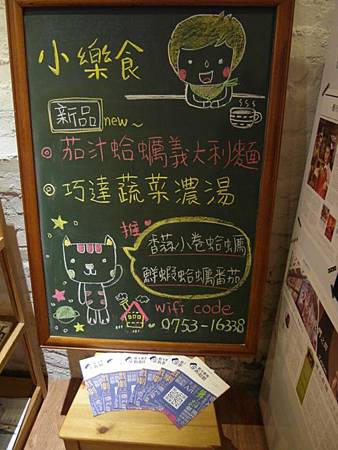 小樂食
新品 new~
茄汁蛤蠣義大利麵
巧達蔬菜濃湯
推
香蒜小卷蛤蠣
鮮蝦蛤蠣番茄
wifi code
0753-16338